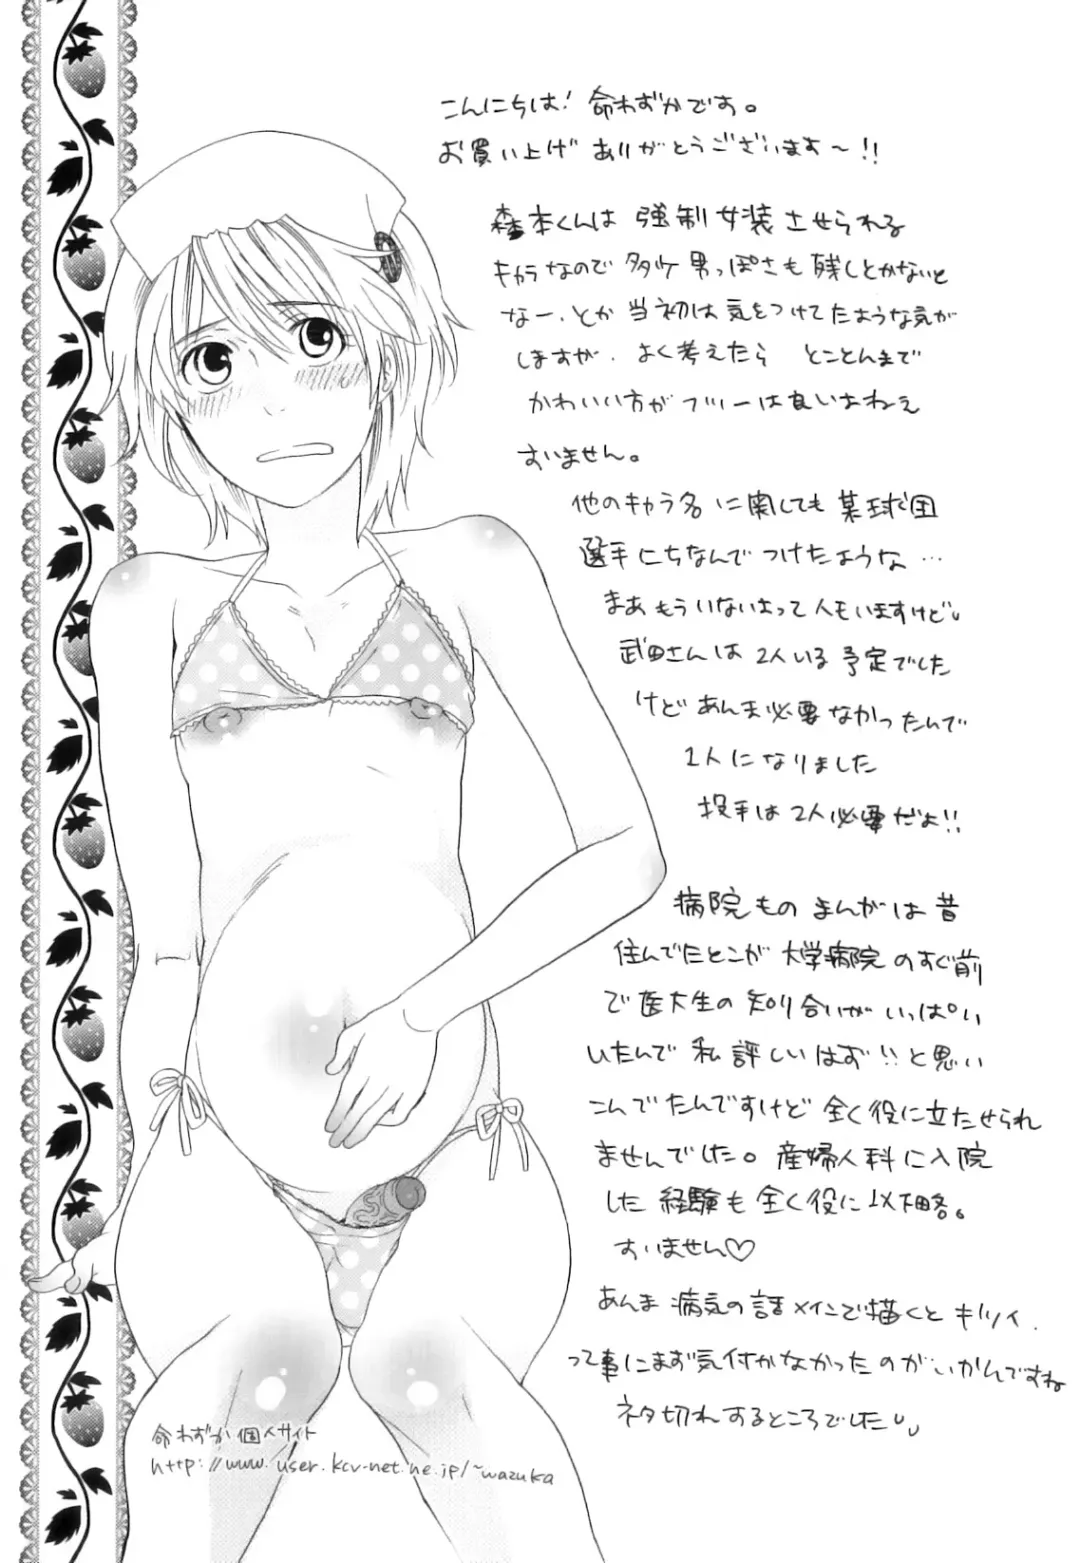 こんにちは! 命わずかです。
お買い上げ ありがとうございます〜!!
森本くんは 強制女装させられる
キャラなので 多少 男っぽさも 残しとかないと
なー、とか 当初は 気をつけてたような気が
しますが、よく考えたら とことんまで
かわいい方が フツーは良いよねえ
すいません。
他のキャラ名 に関しても 某球団
選手にちなんで つけたような…
まあ もういないよって人もいますけど
武田さんは 2人いる予定でした
けど あんま必要なかったんで
1人になりました
投手は 2人必要だよ!!
病院もの まんがは 昔
住んでたとこが 大学病院 のすぐ前
で医大生の 知り合いが いっぱい
いたんで 私 詳しいはず!! と思い
こんでたんですけど 全く役に立たせられ
ませんでした。産婦人科に入院
した 経験も 全く役に 以下略。
すいません♡
あんま 病気の話メインで描くと キツイ、
って事にまず気付かなかったのがいかんですね
ネタ切れするところでした
命わずか 個人サイト
http://www.user.kcv-net.ne.jp/~wazuka